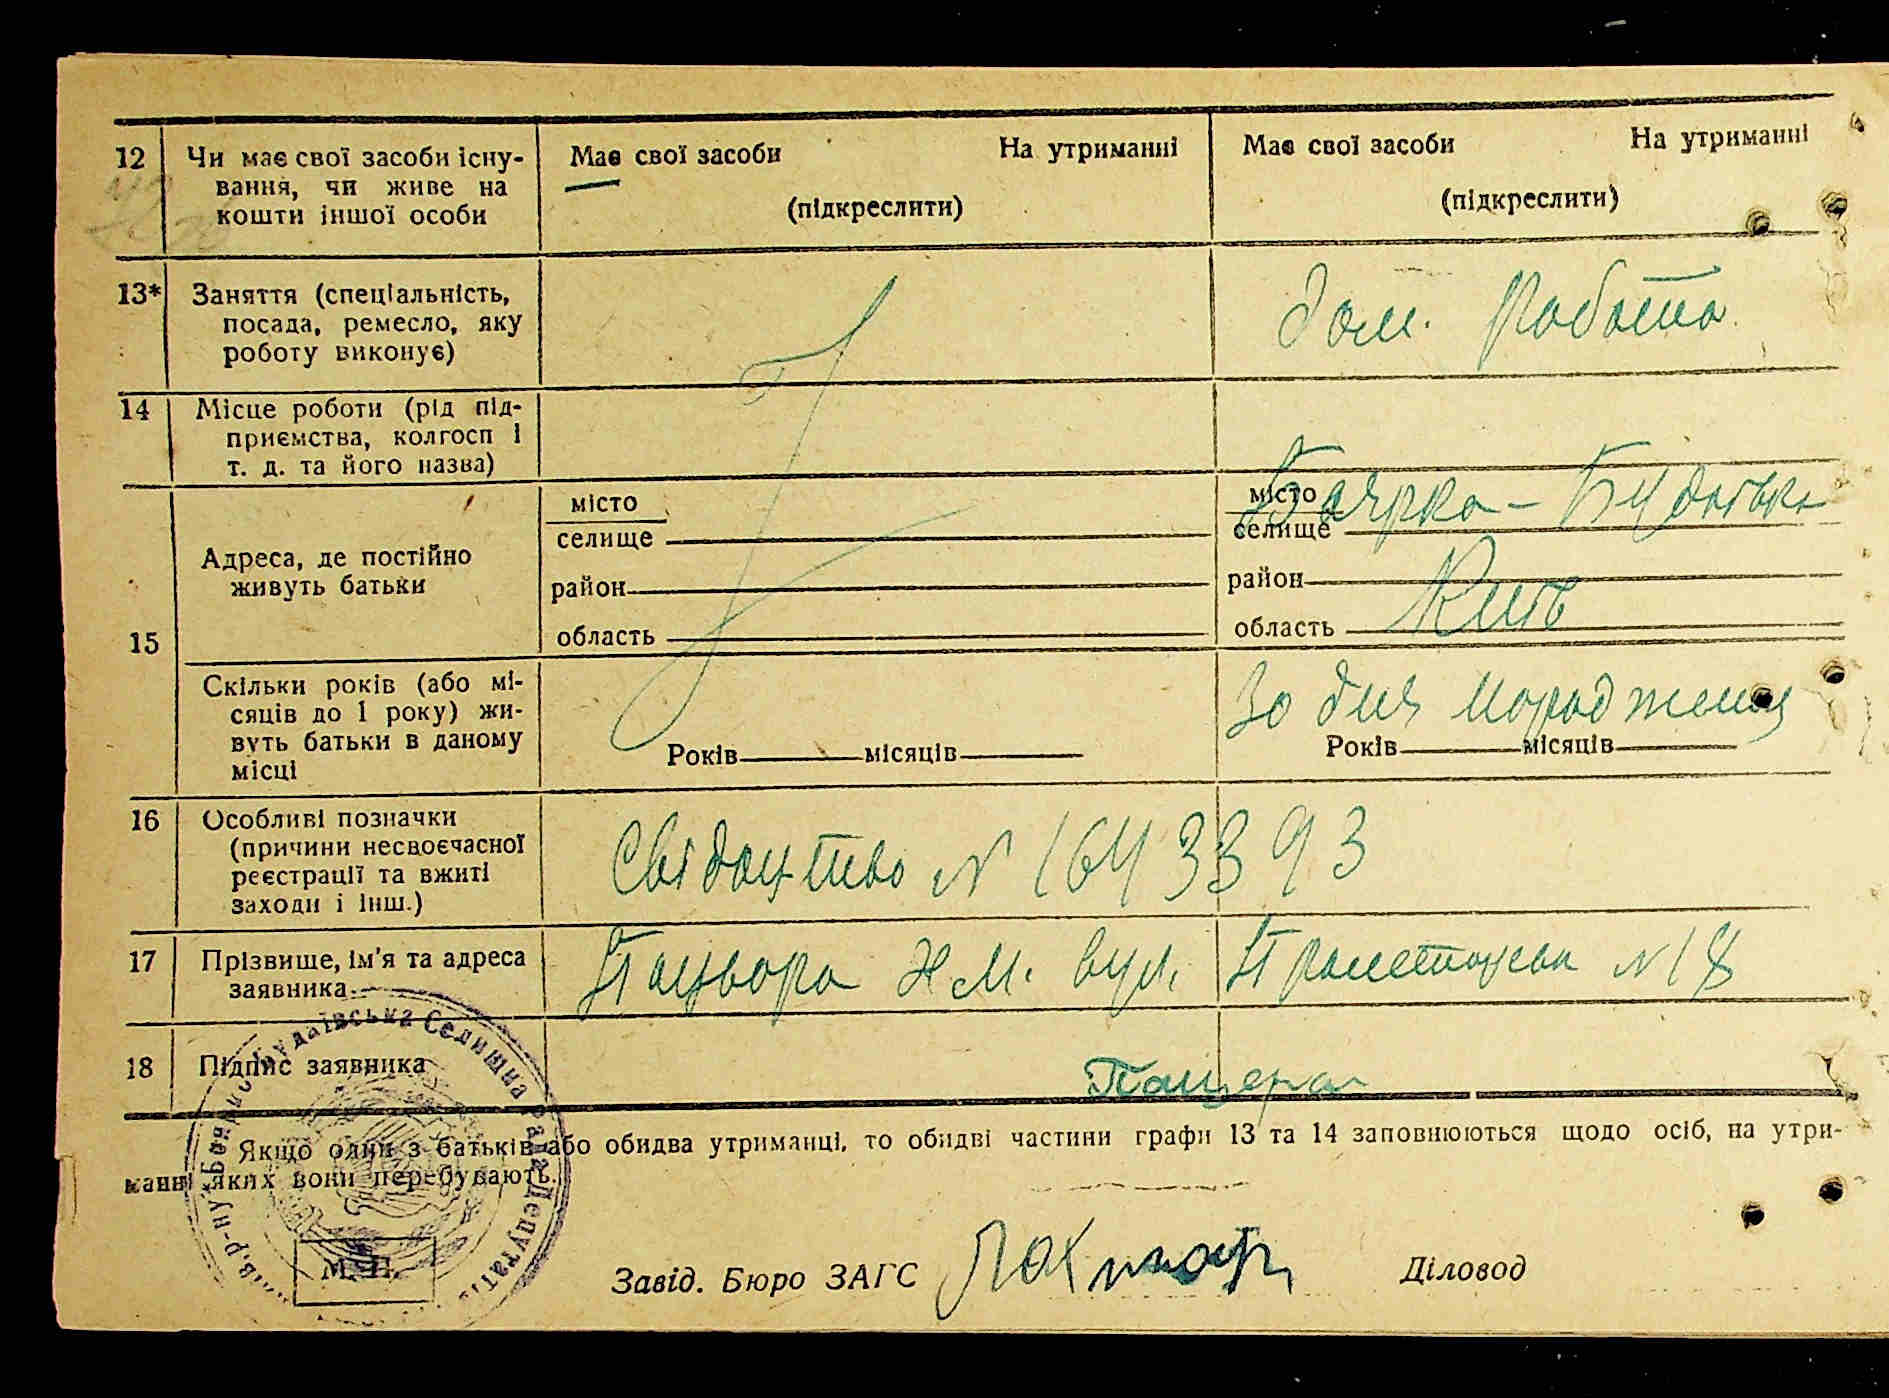 12 Чи має свої засоби існу- Має свої засоби На утриманні Має свої засоби На утриманні
вання, чи живе на (підкреслити) (підкреслити)
кошти іншої особи
13* Заняття (спеціальність, дом. Робота
посада, ремесло, яку
роботу виконує)
14 Місце роботи (рід під-
приємства, колгосп і
т. д. та його назва)
15 Адреса, де постійно
живуть батьки
місто
селище
район
область
місто Боярка -
селище
район
область Київ
Скільки років (або мі-
сяців до 1 року) жи-
вуть батьки в даному
місці
Років місяців
Зо дня
Років місяців
16 Особливі позначки
(причини несвоєчасної
реєстрації та вжиті
заходи і інш.)
Свідоцтво N 1643393
17 Прізвище, ім'я та адреса
заявника
вул. N 18
18 Підпис заявника
Якщо один з батьків або обидва утриманці, то обидві частини графи 13 та 14 заповнюються щодо осіб, на утри-
манні яких вони перебувають.
Селищна Рада Депутатів
М. П.
Завід. Бюро ЗАГС Діловод